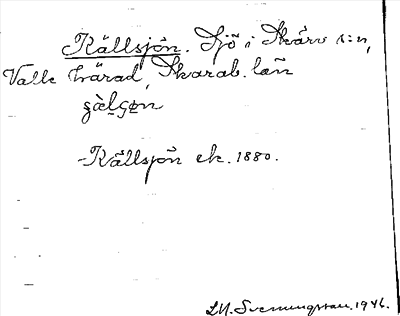 Källsjön. Sjö i Skärv s:n,
Valle härad, Skarab. län
-Källsjön ek. 1880.
L.N. Svenungsson. 1946.